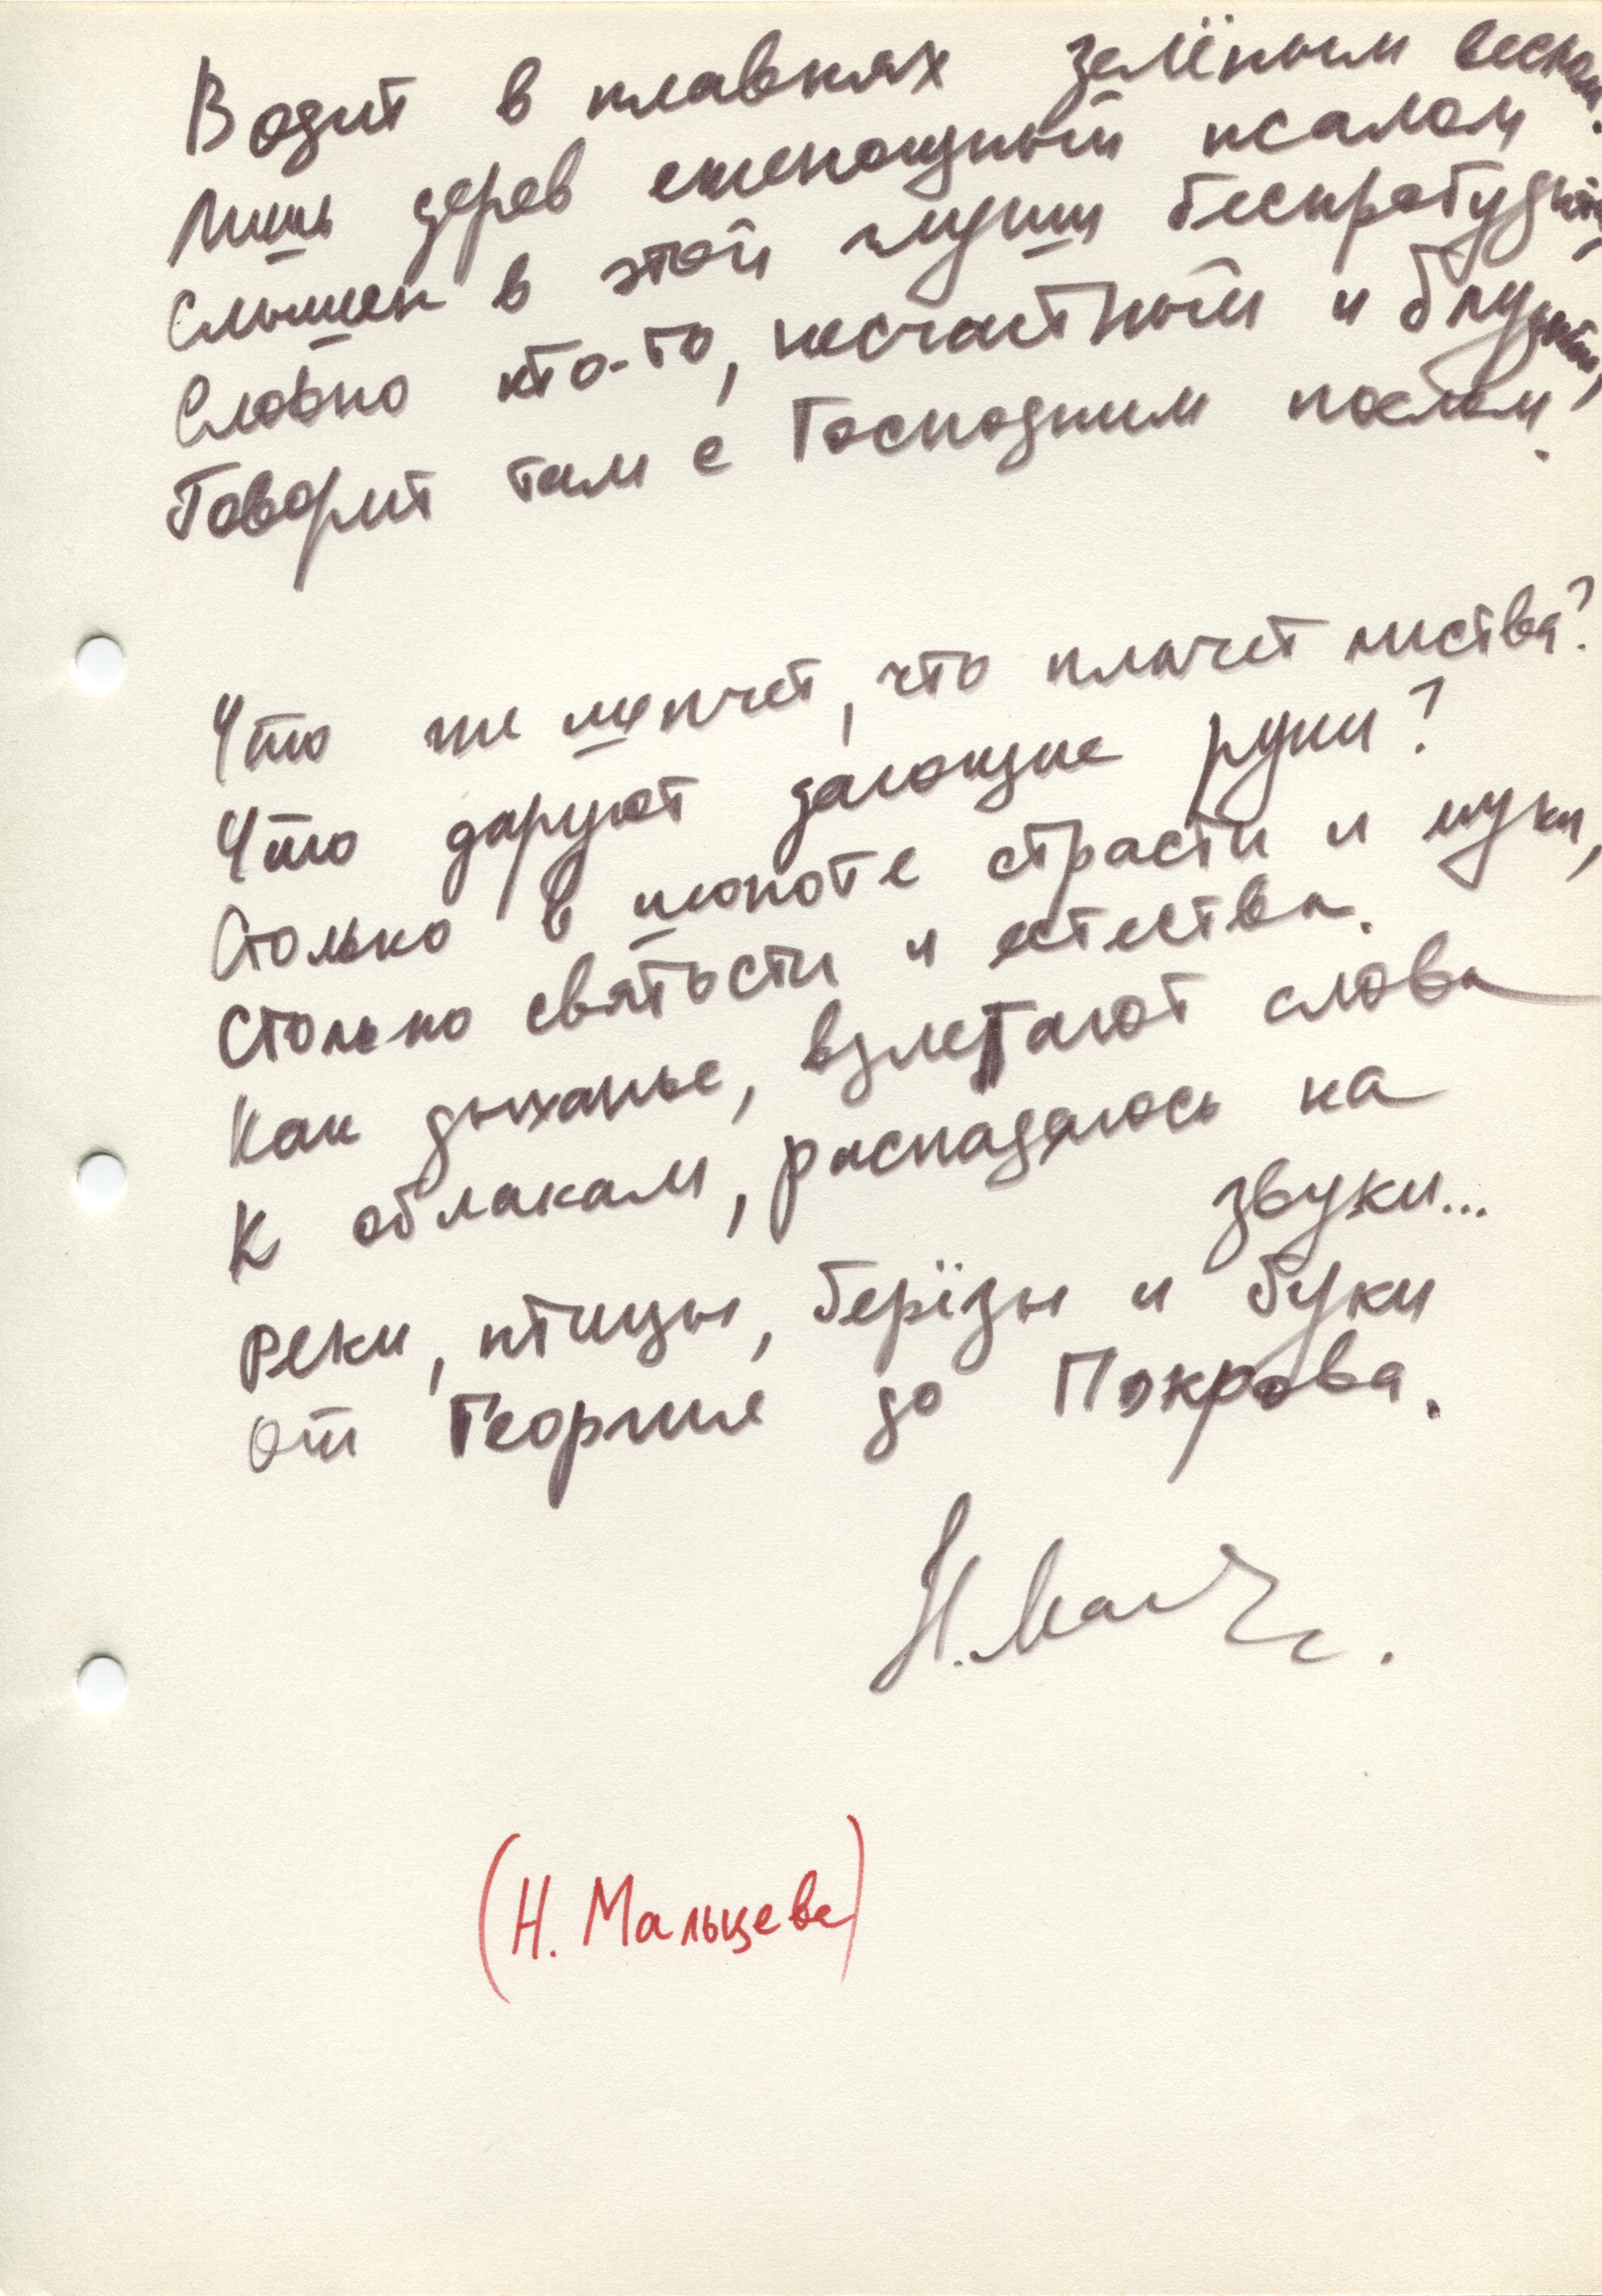 Водит в плавнях зелёным веслом.
Лишь дерев еженощный псалом
Слышен в этой глуши беспробудной,
Словно кто-то, несчастный и блудный,
Говорит там с Господним послом.
Что же шепчет, что плачет листва?
Что даруют дающие руки?
Столько в шопоте страсти и муки,
Столько святости и естества.
Как дыханье, взлетают слова
К облакам, распадаясь на
звуки...
Реки, птицы, берёзы и буки
От Георгия до Покрова.
Н. Мальц
(Н. Мальцева)